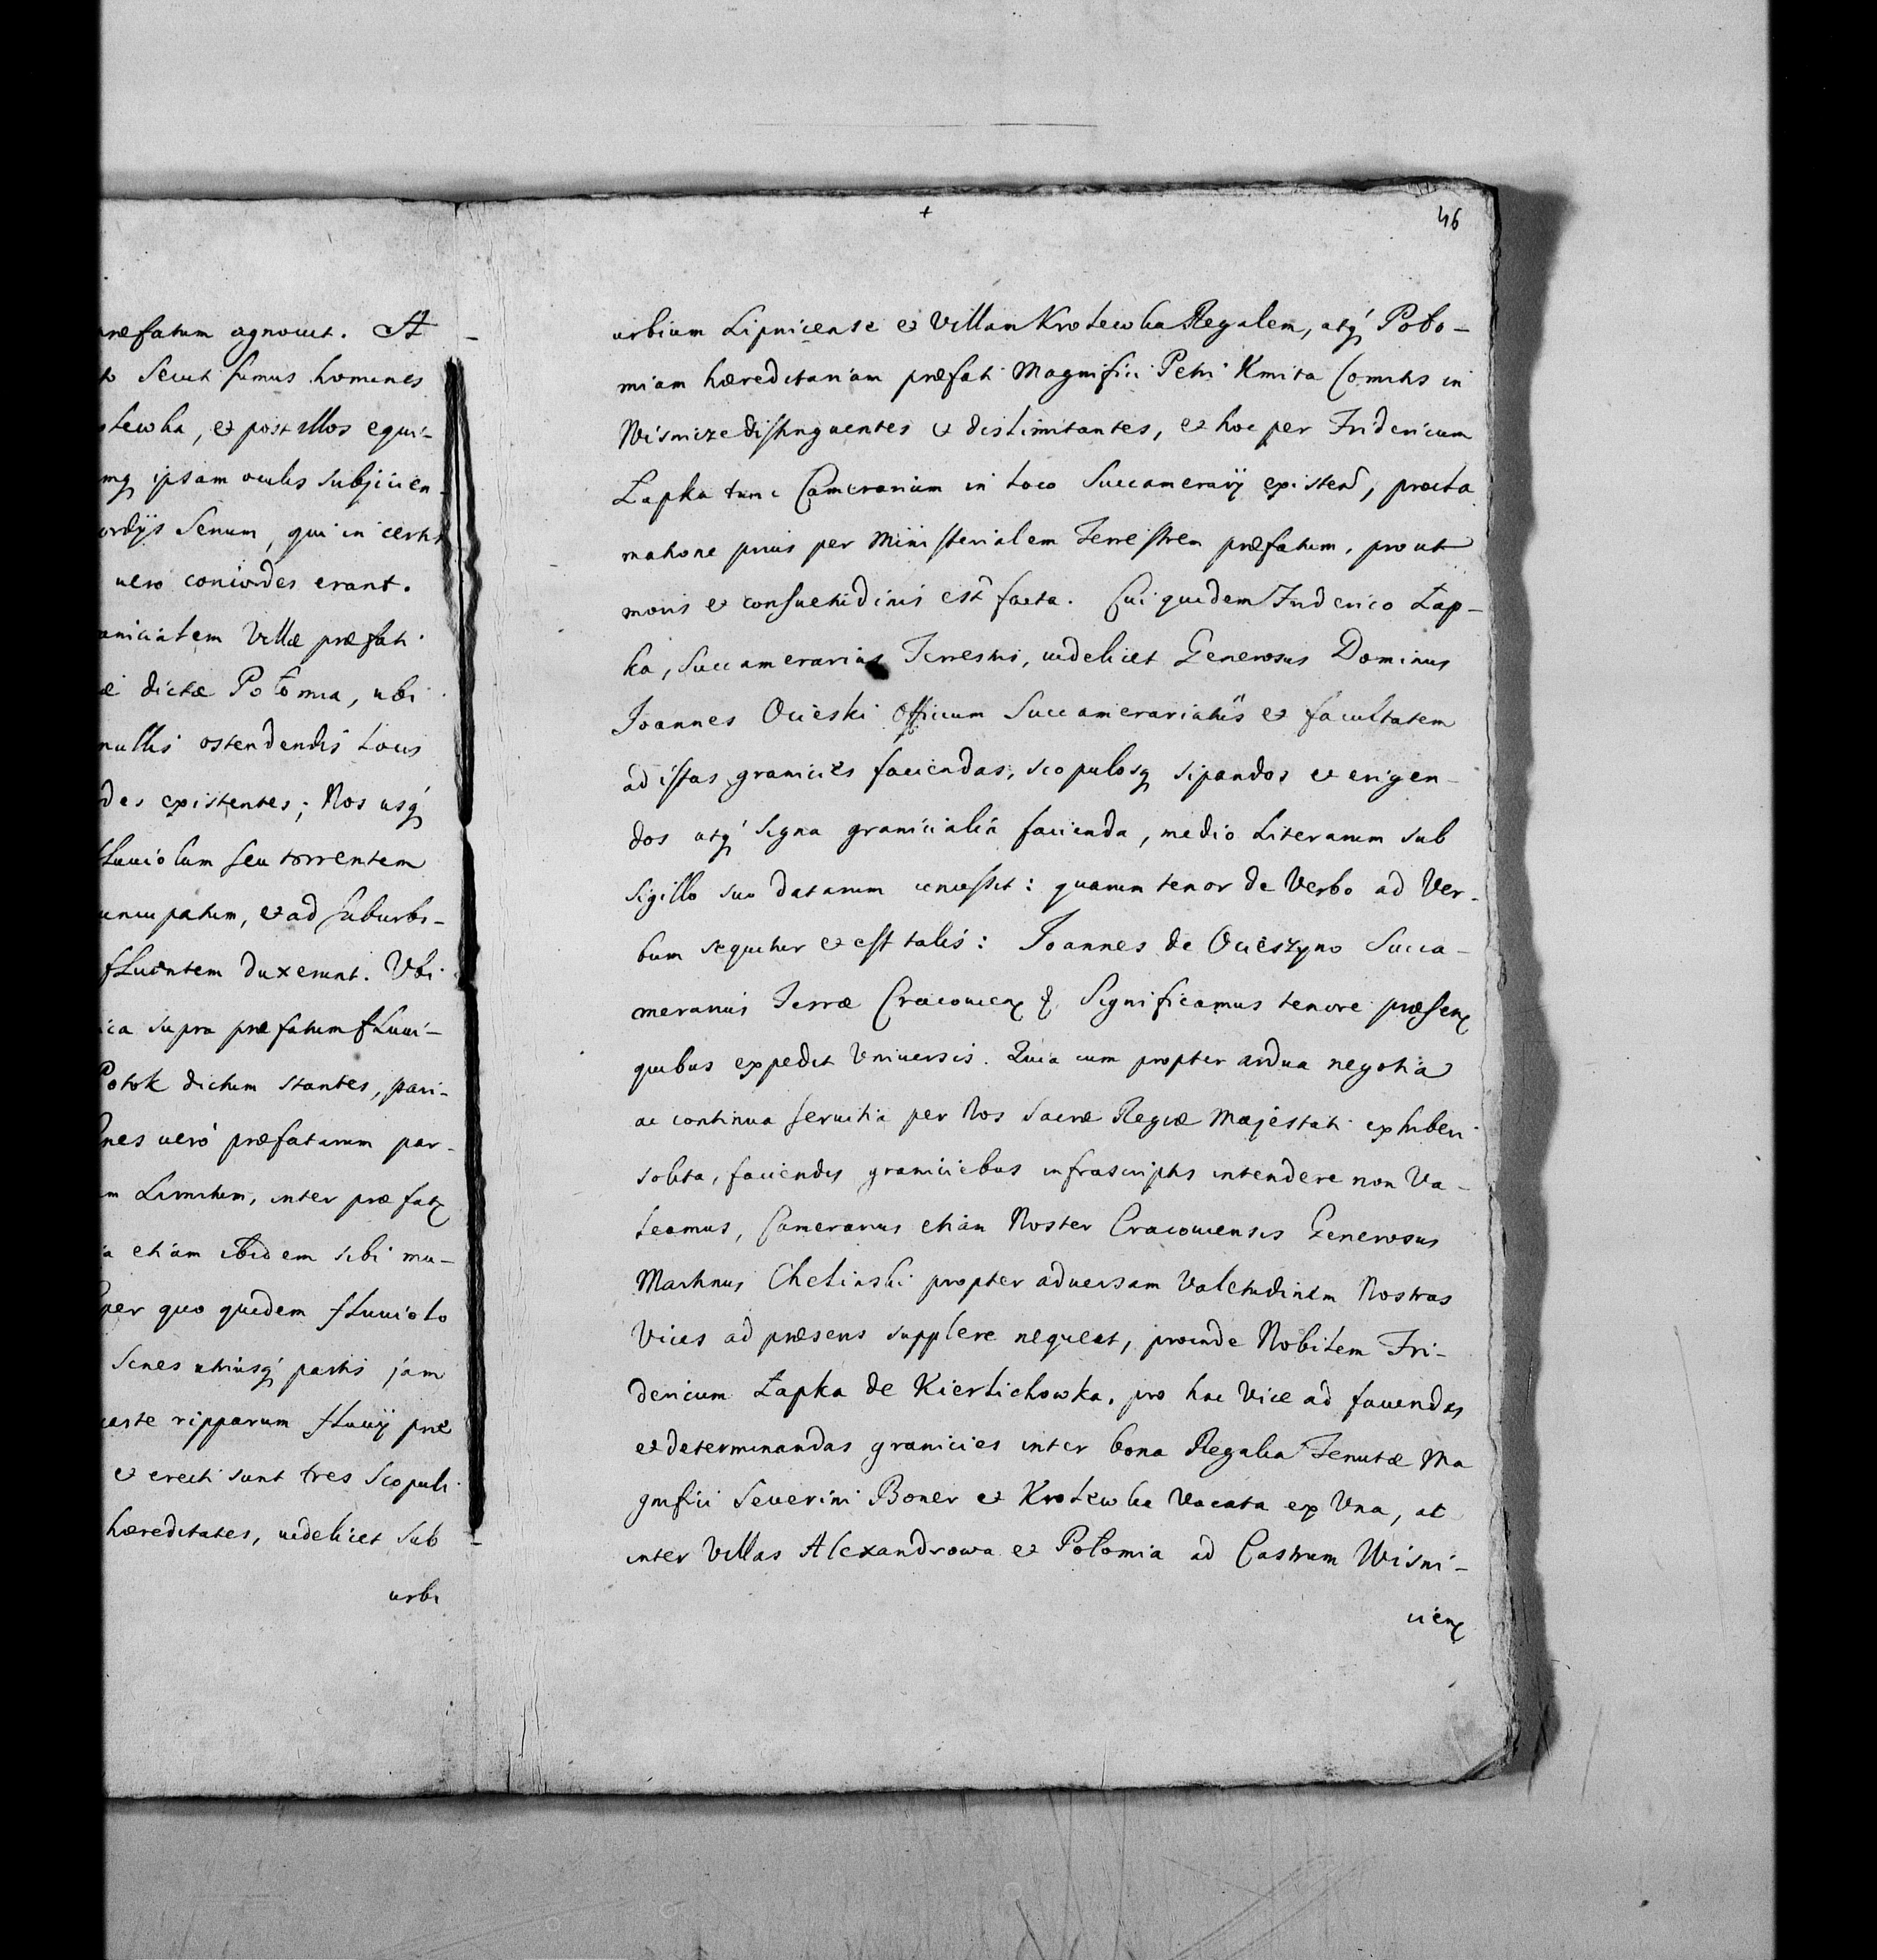 ræfatum agnovit. At
sicut simus homines
lewka, et post illos equi-
mq, ipsam oculis subjicien-
ordijs Senum, qui in certis
uero concordes erant.
anicialem Villæ præfati
æ dictæ Połomia, ubi
nullis ostendendis locis
des existentes; Nos usq,
fluviolum seu torrentem
uncupatum, et ad suburbi-
fluentem duxerunt. Vbi
ica supra præfatum fluvi-
Potok dictum stantes, pari-
nes uerò præfatarum par-
m Limitem, inter præfat,
a etiam ibidem sibi mu-
per quo quidem fluviolo
Senes utriusq, partis jam
parte ripparum fluvij præ
et erecti sunt tres Scopuli
hæreditates, uidelicet sub
urbi
+
46
urbium Lipnicense et Villam Krolewka Regalem, atq, Polo-
miam hæreditariam præfati Magnifici Petri Kmita Comitis in
Wisnicze distinguentes et dislimitantes, et hoc per Fridericum
Łapka tunc Camerarium in loco Succamerarij existen, procla
matione prius per Ministerialem Terrestrem præfatum, prout
moris et consuetudinis est facta. Cui quidem Friderico Łap-
ka, Succamerarius Terrestris, uidelicet Generosus Dominus
Joannes Ocieski Officium Succamerariatûs et facultatem
ad istas granicies faciendas, scopulosq, sipandos et erigen-
dos atq, signa granicialia facienda, medio Literarum sub
sigillo suo datarum concessit: quarum tenor de Verbo ad Ver-
bum sequitur et est talis: Joannes de Ocieszyno Succa-
merarius Terræ Cracovien, &, Significamus tenore præsen,
quibus expedit Vniversis. Quia cum propter ardua negotia
ac continua servitia per Nos Sacræ Regiæ Majestati exhiberi
solita, faciendis graniciebus infrascriptis intendere non Va-
leamus, Camerarius etiam Noster Cracoviensis Generosus
Martinus Chelinski propter adversam Valetudinem Nostras
Vices ad præsens supplere nequeat, proinde Nobilem Fri-
dericum Łapka de Kierlichowka, pro hac Vice ad faciendas
et determinandas granicies inter bona Regalia Tenutæ Ma
gnifici Severini Boner et Krolewka Vocata ex Vna, at
inter Villas Alexandrowa et Polomia ad Castrum Wisni-
cien,